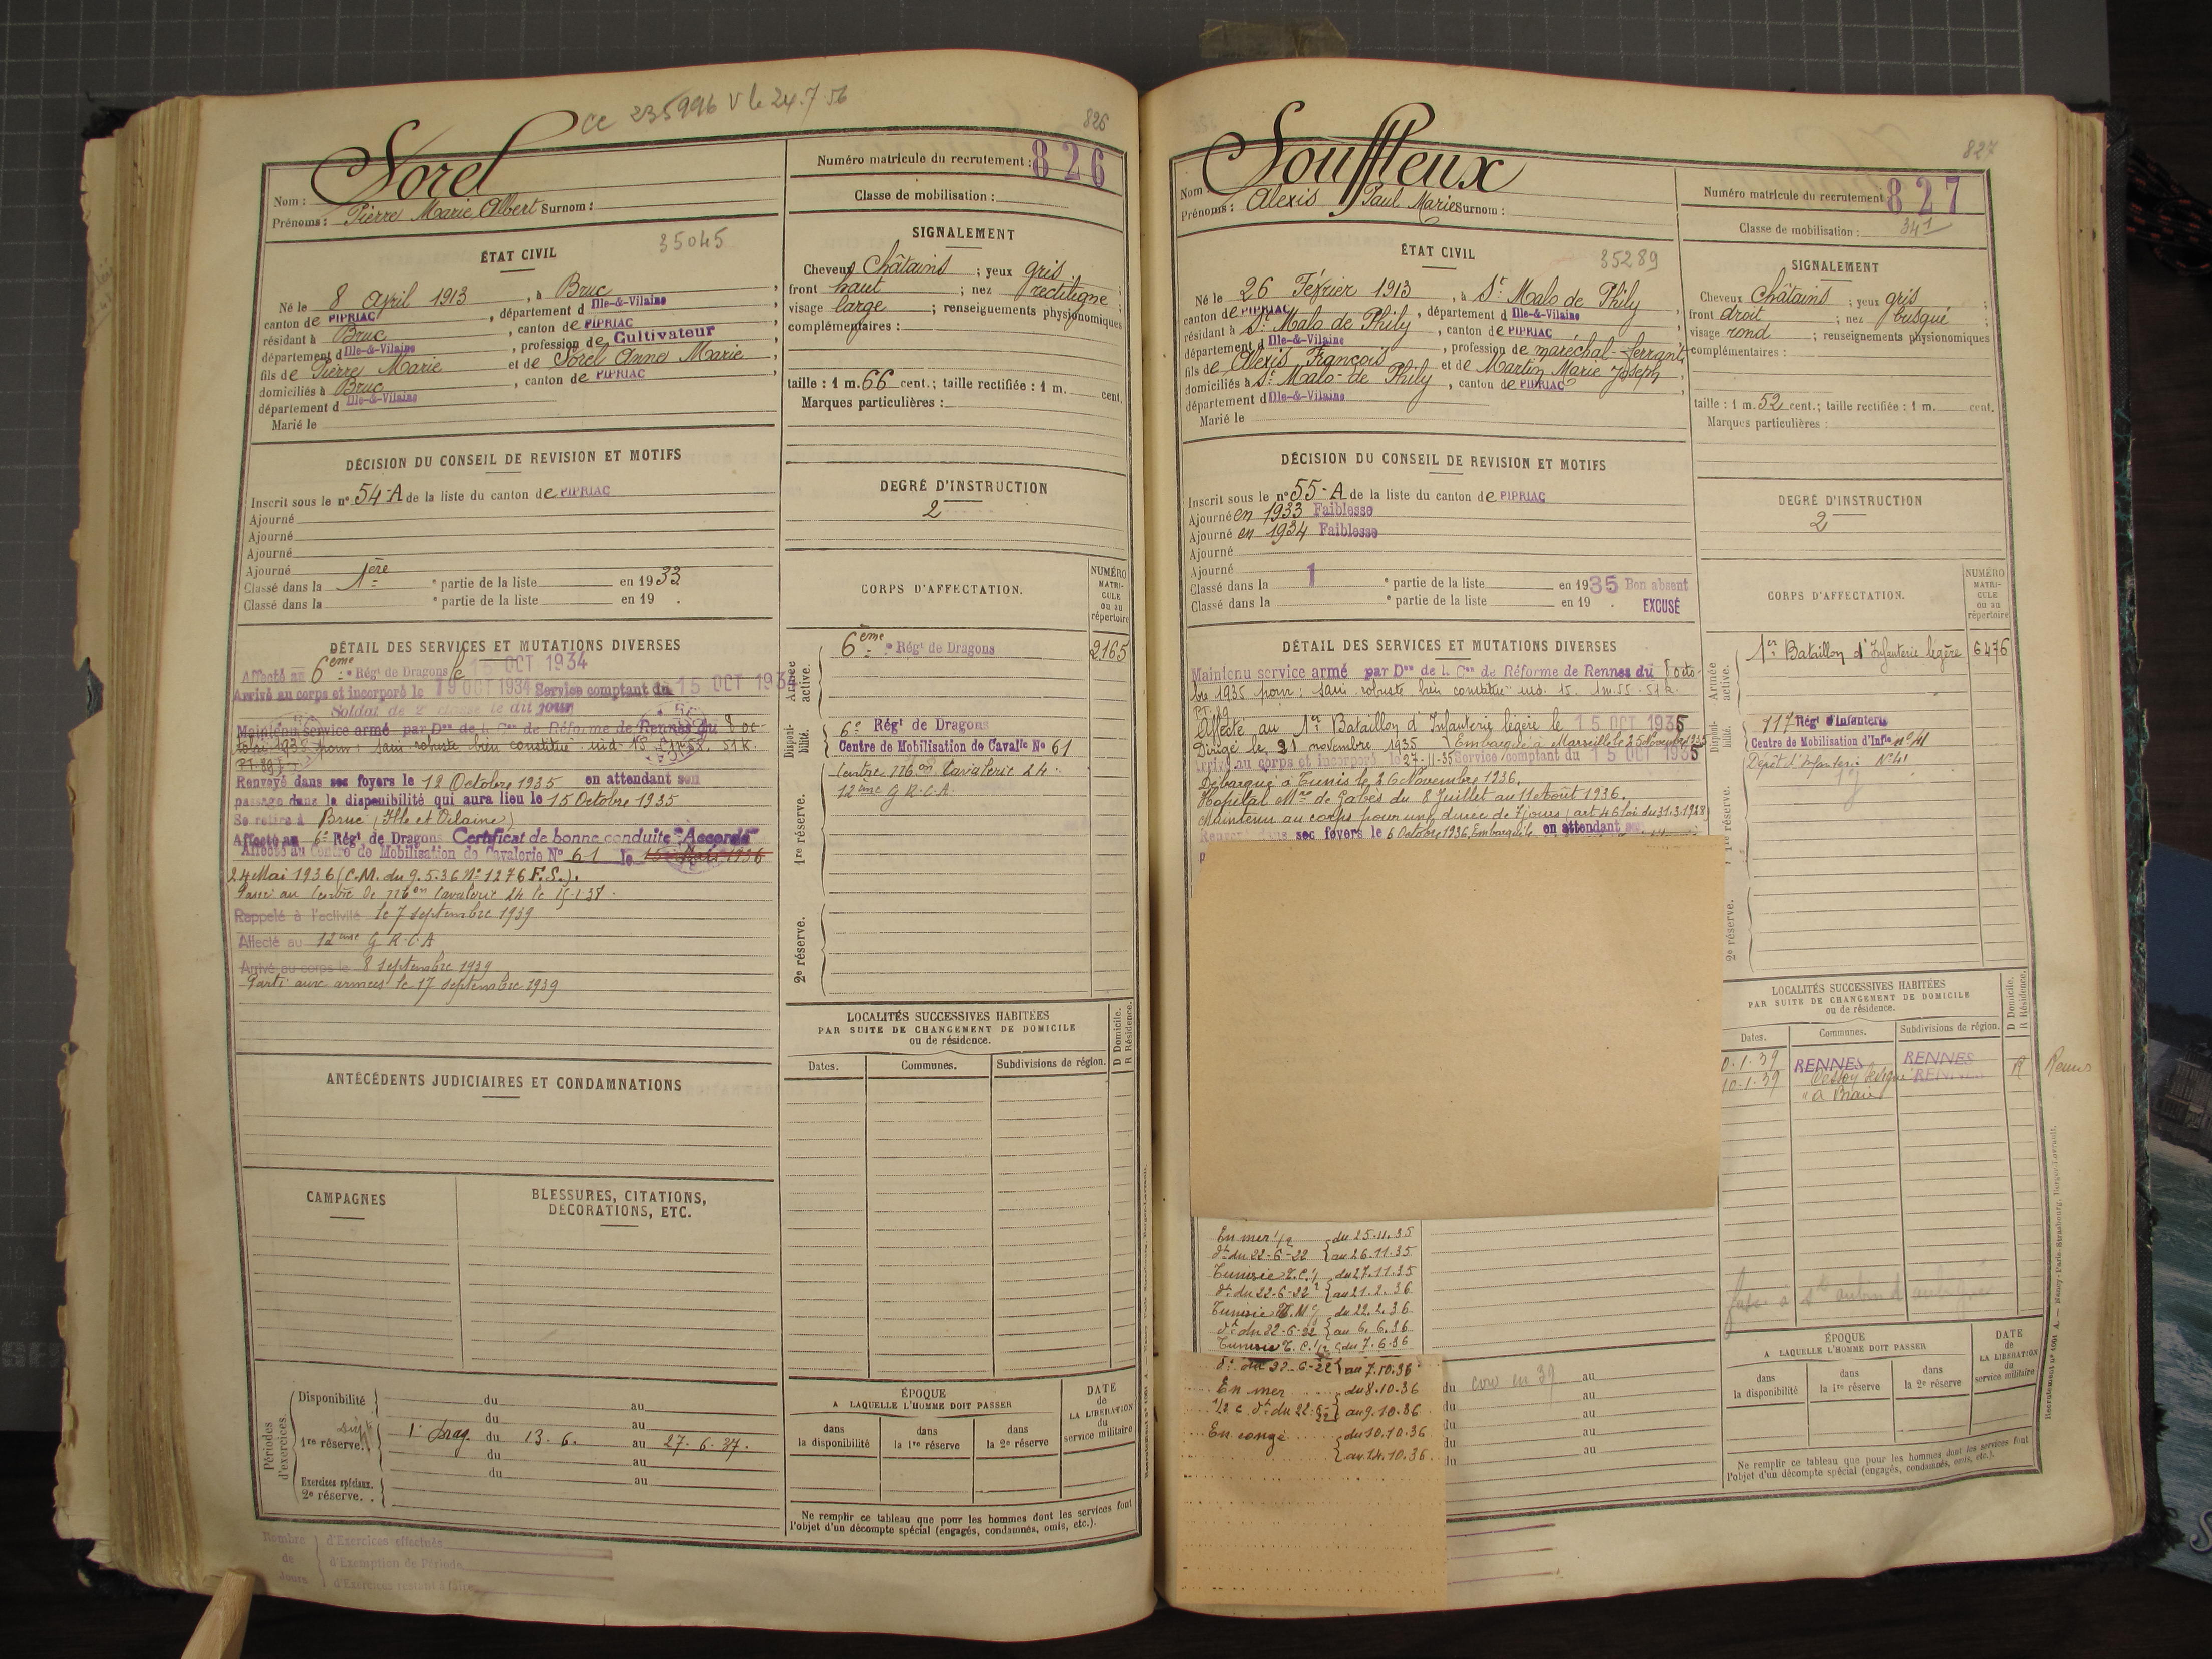 cc 235996 V le 24.7.56
826
Sorel
Nom :
Prénoms : Pierre Marie Albert Surnom :
Numéro matricule du recrutement : 826
Classe de mobilisation :
ÉTAT CIVIL
35045
Né le 8 Avril 1913, à Bruc,
canton de PIPRIAC, département d Ille-&-Vilaine,
résidant à Bruc, canton de PIPRIAC,
département d Ille-&-Vilaine, profession de Cultivateur,
fils de Pierre Marie et de Sorel Anne Marie,
domiciliés à Bruc, canton de PIPRIAC,
département d Ille-&-Vilaine
Marié le
SIGNALEMENT
Cheveux Châtains ; yeux gris ;
front haut ; nez rectiligne ;
visage large ; renseignements physionomiques
complémentaires :
taille : 1 m. 66 cent. ; taille rectifiée : 1 m. cent.
Marques particulières :
DÉCISION DU CONSEIL DE REVISION ET MOTIFS
Inscrit sous le n° 54-A de la liste du canton de PIPRIAC
Ajourné
Ajourné
Ajourné
Ajourné
Classé dans la 1ère e partie de la liste en 1933
Classé dans la e partie de la liste en 19 .
DEGRÉ D'INSTRUCTION
2
CORPS D'AFFECTATION.
NUMÉRO
MATRI-
CULE
ou au
répertoire
Armée active.
6ème Régt de Dragons 2165
Disponi-bilité.
6e Régt de Dragons
Centre de Mobilisation de Cavalle No 61
1re réserve.
Centre Mbon Cavalerie 24.
12ème G.R.C.A.
2e réserve.
DÉTAIL DES SERVICES ET MUTATIONS DIVERSES
Affecté au 6ème Régt de Dragons le 15 OCT 1934
Arrivé au corps et incorporé le 19 OCT 1934 Service comptant du 15 OCT 1934
Soldat de 2e classe le dit jour
Maintenu service armé par Don de la Con de Réforme de Rennes du 8 oc-
Renvoyé dans ses foyers le 12 Octobre 1935 en attendant son
passage dans la disponibilité qui aura lieu le 15 Octobre 1935
Se retire à Bruc (Ille et Vilaine)
Affecté au 6e Régt de Dragons Certificat de bonne conduite "Accordé"
Affecté au Centre de Mobilisation de Cavalerie No 61 le
24 Mai 1936 (C.M. du 9.5.36 No 1276 F.S.).
Passé au Centre de Mbon Cavalerie 24 le 15.1.38.
Rappelé à l'activité le 7 septembre 1939
Affecté au 12ème G.R.C.A
Arrivé au corps le 8 septembre 1939
Parti aux armées le 17 septembre 1939
LOCALITÉS SUCCESSIVES HABITÉES
PAR SUITE DE CHANGEMENT DE DOMICILE
ou de résidence.
D Domicile.
R Résidence.
Dates. Communes. Subdivisions de région.
ANTÉCÉDENTS JUDICIAIRES ET CONDAMNATIONS
CAMPAGNES
BLESSURES, CITATIONS,
DÉCORATIONS, ETC.
Périodes d'exercices.
Disponibilité du au
du au
1re réserve. 1er Drag. du 13.6. au 27.6.37.
du au
Exercices spéciaux. du au
2e réserve.
ÉPOQUE
A LAQUELLE L'HOMME DOIT PASSER
dans la disponibilité
dans la 1re réserve
dans la 2e réserve
DATE
de
LA LIBÉRATION
du
service militaire
Ne remplir ce tableau que pour les hommes dont les services font
l'objet d'un décompte spécial (engagés, condamnés, omis, etc.).
Nombre de Jours
d'Exercices effectués
d'Exemption de Période
d'Exercices restant à faire
827
Souffleux
Nom :
Prénoms : Alexis Paul Marie Surnom :
Numéro matricule du recrutement : 827
Classe de mobilisation : 341
ÉTAT CIVIL
35289
Né le 26 Février 1913, à St Malo de Phily,
canton de PIPRIAC, département d Ille-&-Vilaine,
résidant à St Malo de Phily, canton de PIPRIAC,
département d Ille-&-Vilaine, profession de maréchal-ferrant,
fils de Alexis François et de Martin Marie Joseph,
domiciliés à St Malo-de Phily, canton de PIPRIAC,
département d Ille-&-Vilaine
Marié le
SIGNALEMENT
Cheveux Châtains ; yeux gris
front droit ; nez busqué ;
visage rond ; renseignements physionomiques
complémentaires :
taille : 1 m. 52 cent. ; taille rectifiée : 1 m. cent.
Marques particulières :
DÉCISION DU CONSEIL DE REVISION ET MOTIFS
Inscrit sous le n° 55-A de la liste du canton de PIPRIAC
Ajourné en 1933 Faiblesse
Ajourné en 1934 Faiblesse
Ajourné
Ajourné
Classé dans la 1 e partie de la liste en 1935 Bon absent
Classé dans la e partie de la liste en 19 . EXCUSÉ
DEGRÉ D'INSTRUCTION
2
CORPS D'AFFECTATION.
NUMÉRO
MATRI-
CULE
ou au
répertoire
Armée active.
1er Bataillon d'Infanterie légère 6476
Disponi-bilité.
117 Régt d'Infanterie
Centre de Mobilisation d'Infie no 41
Dépôt d'Infanterie No 41
1re réserve.
2e réserve.
DÉTAIL DES SERVICES ET MUTATIONS DIVERSES
Maintenu service armé par Don de la Con de Réforme de Rennes du 8 octo-
bre 1935 pour : sain robuste bien constitué ind. 15. 1m.55. 51k.
PT.89
Affecté au 1er Bataillon d'Infanterie légère le 15 OCT 1935
Dirigé le 21 novembre 1935 Embarqué à Marseille le 25 Novembre 1935
Arrivé au corps et incorporé le 27-11-35 Service comptant du 15 OCT 1935
Débarqué à Tunis le 26 Novembre 1936.
Hôpital Mre de Gabès du 8 Juillet au 11 Août 1936.
Maintenu au corps pour une durée de 7 jours (art 46 loi du 31.3.1928)
Renvoyé dans ses foyers le 6 Octobre 1936, Embarqué le en attendant son
LOCALITÉS SUCCESSIVES HABITÉES
PAR SUITE DE CHANGEMENT DE DOMICILE
ou de résidence.
D Domicile.
R Résidence.
Dates. Communes. Subdivisions de région.
0.1.39 RENNES RENNES
10-1-39 Cesson Sévigné RENNES R Rennes
En mer 1/2 du 25.11.35
dt du 22-6-22 au 26.11.35
Tunisie T.C. du 27.11.35
dt du 22-6-22 au 21.2.36
Tunisie T.M. du 22.2.36
dt du 22-6-22 au 6.6.36
Tunisie T.C. 1/2 du 7.6.36
dt du 22-6-22 au 7.10.36
En mer du 8.10.36
1/2 c dt du 22-6-22 au 9.10.36
En congé du 10.10.36
au 14.10.36
du au
du au
du au
du au
du au
du
ÉPOQUE
A LAQUELLE L'HOMME DOIT PASSER
dans la disponibilité
dans la 1re réserve
dans la 2e réserve
DATE
de
LA LIBÉRATION
du
service militaire
Ne remplir ce tableau que pour les hommes dont les services font
l'objet d'un décompte spécial (engagés, condamnés, omis, etc.).